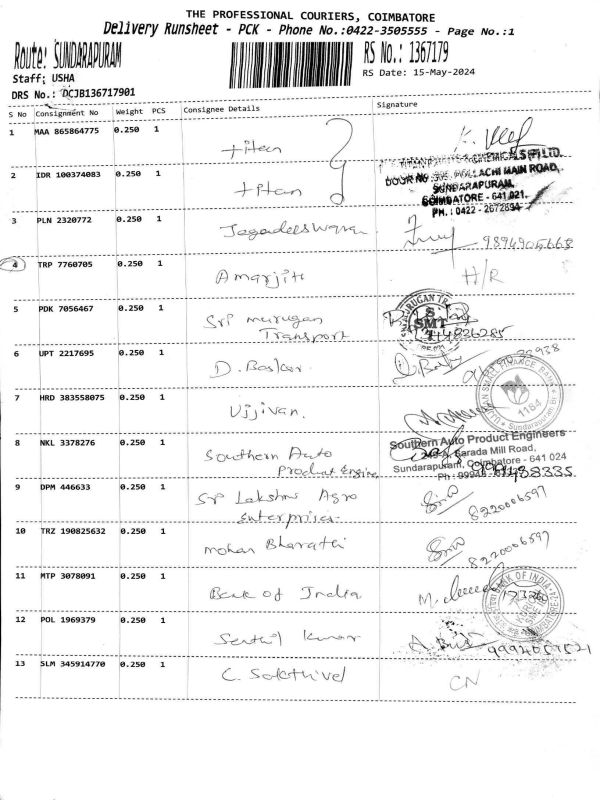 THE PROFESSIONAL COURIERS, COIMBATORE
Delivery Runsheet - PCK - Phone No.:0422-3505555 - Page No.:1
Route: SUNDARAPURAM
RS No.: 1367179
Staff: USHA
RS Date: 15-May-2024
DRS No.: DCJB136717901
S No Consignment No Weight PCS Consignee Details Signature
1 MAA 865864775 0.250 1 titan
CHEMICALS (P) LTD.
2 IDR 100374083 0.250 1 titan
DOOR NO. POLLACHI MAIN ROAD,
SUNDARAPURAM,
COIMBATORE - 641 021.
PH. : 0422 - 2672634
3 PLN 2320772 0.250 1 Jagadeeswaran
4 TRP 7760705 0.250 1 Amarjiti H/R
5 PDK 7056467 0.250 1 Sri murugan
Transport
SMT
6 UPT 2217695 0.250 1 D. Baskar
7 HRD 383558075 0.250 1 Ujjivan.
1184
8 NKL 3378276 0.250 1 Southern Auto
Product Engine
Southern Auto Product Engineers
Sarada Mill Road,
Sundarapuram, Coimbatore - 641 024
9 DPM 446633 0.250 1 Sri Lakshmi Agro
Enterprises
8220006597
10 TRZ 190825632 0.250 1 mohan Bharathi
8220006597
11 MTP 3078091 0.250 1 Bank of India
BANK OF INDIA
12 POL 1969379 0.250 1 Senthil Kumar
13 SLM 345914770 0.250 1 C. Sakthivel CN